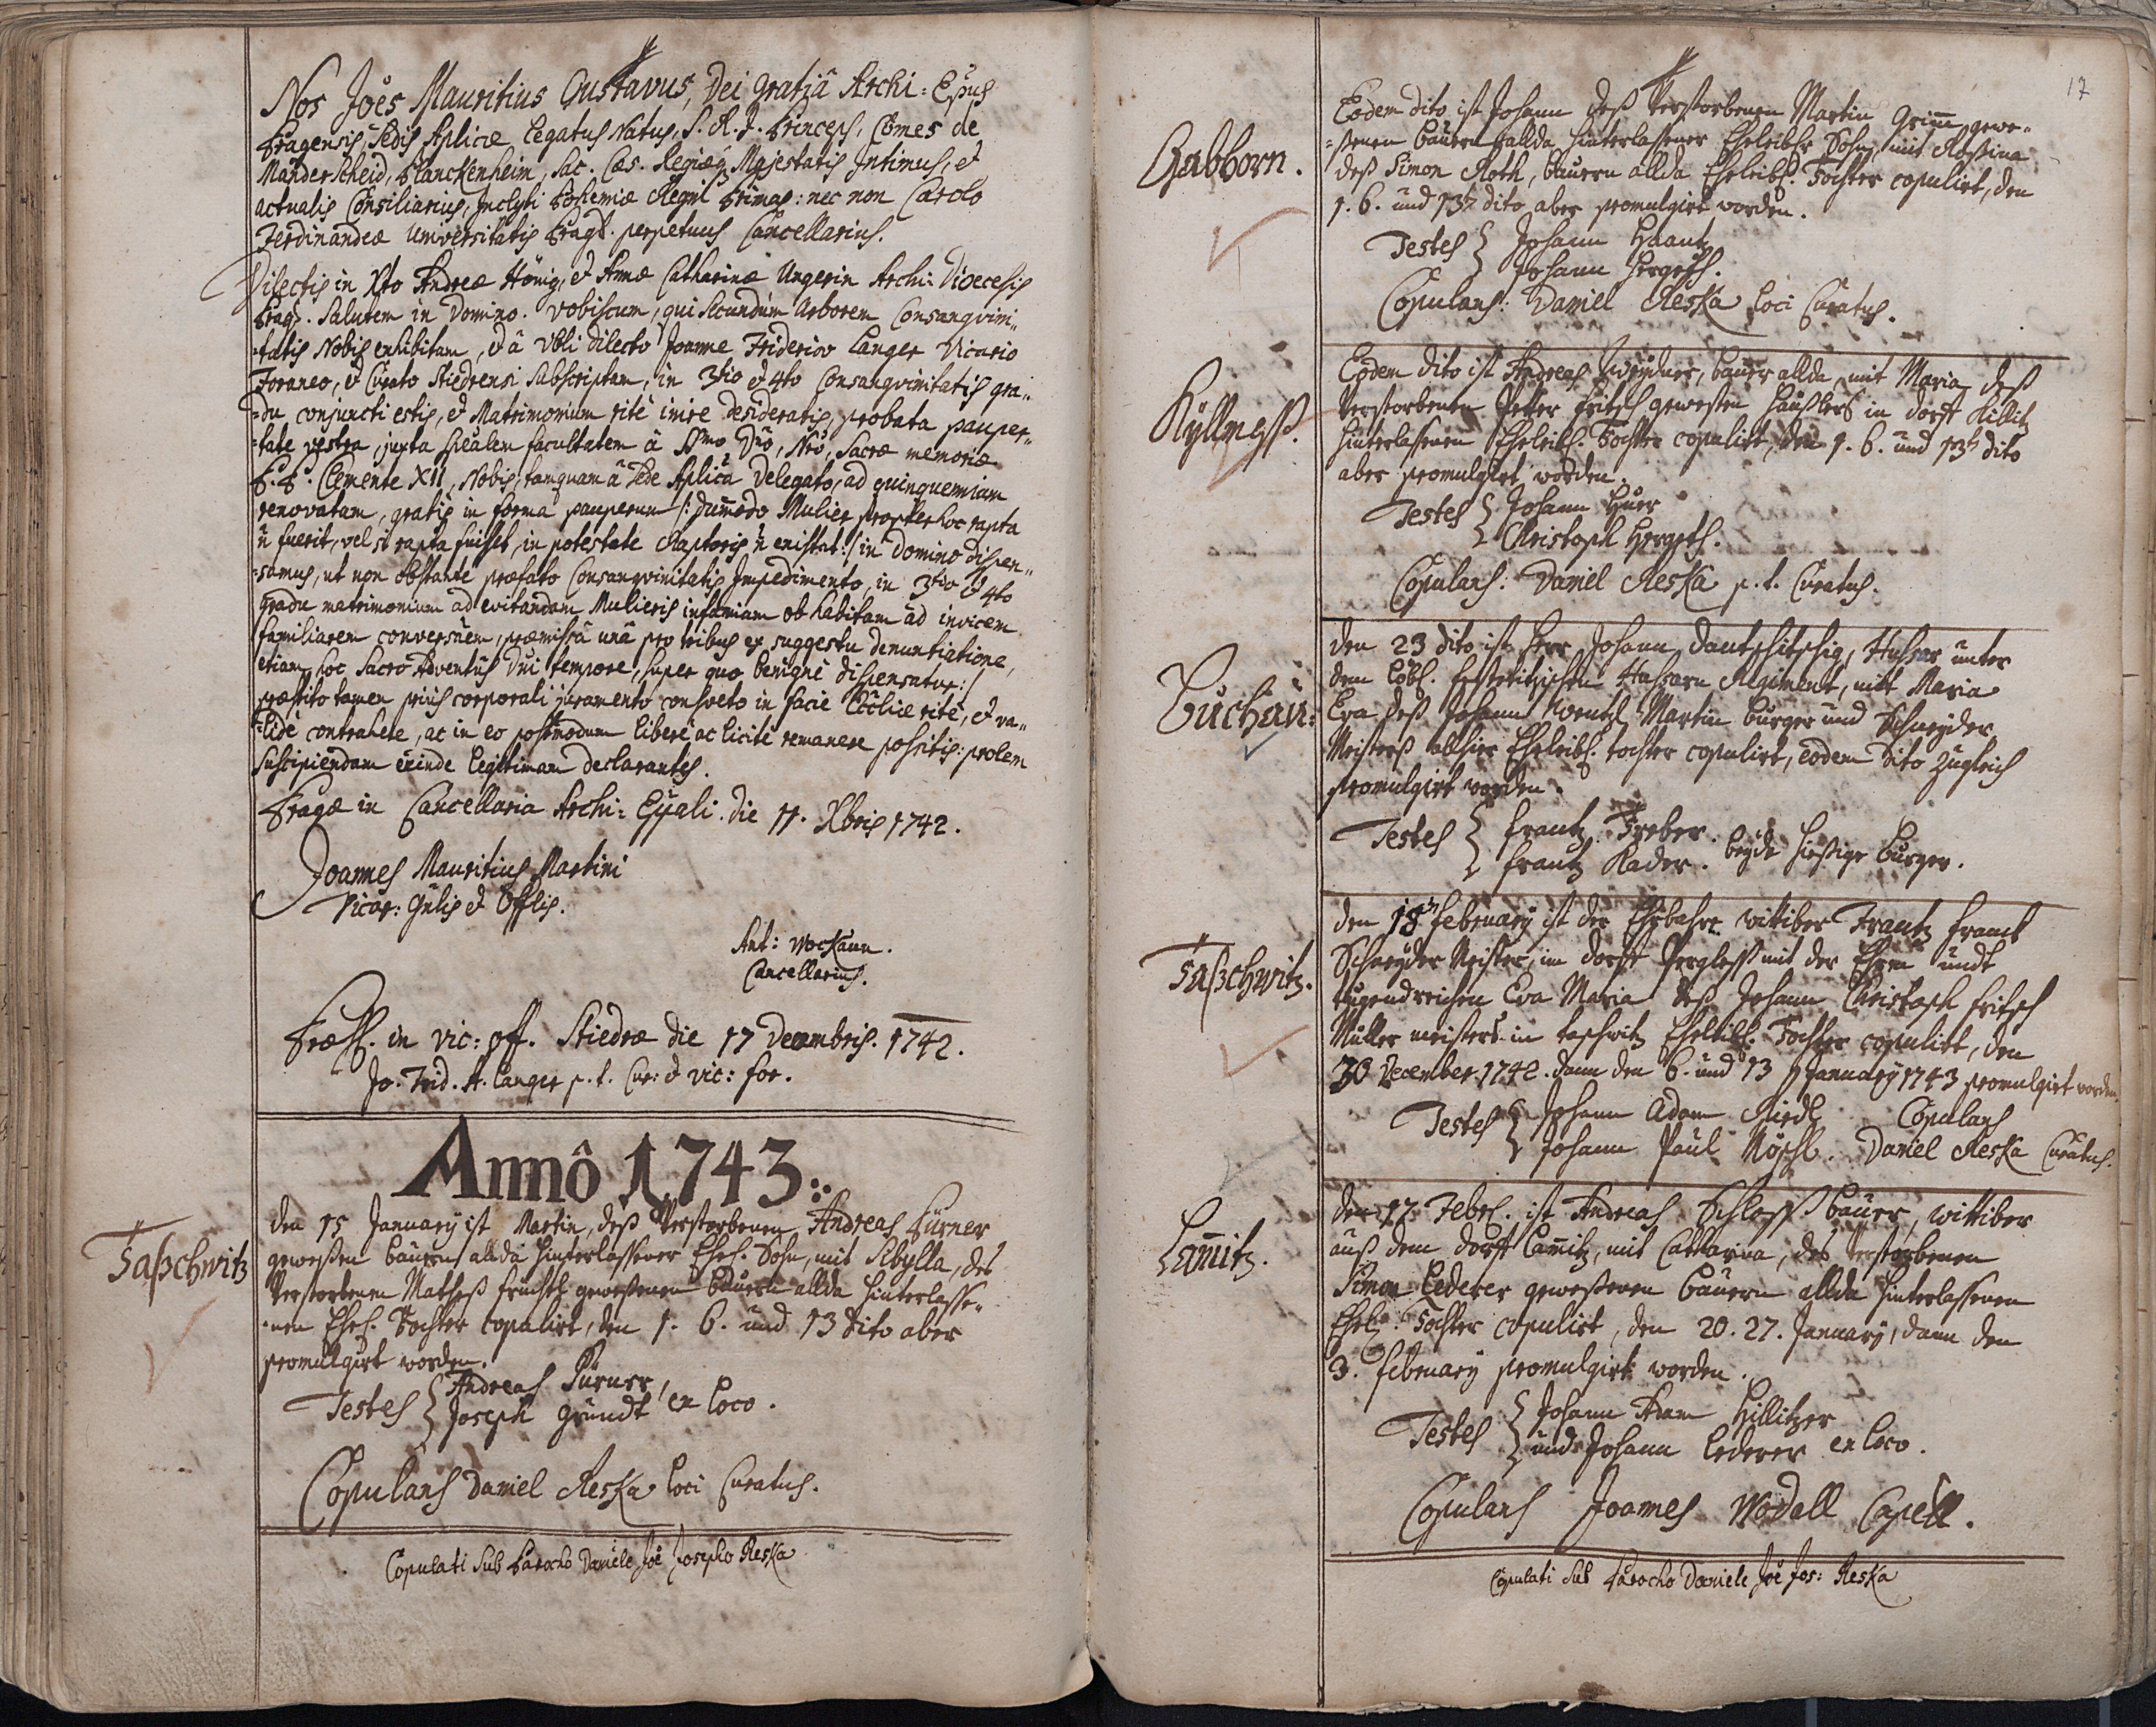 Nos Joes Mauritius Gustavus, Dei gratiâ Archi-Eppus
Pragensis, Sedis Aplicæ Legatus Natus, S. R. J. Princeps, Comes de
Manderscheid, Blanckenheim, Sac. Cæs. Regiæq Majestatis Intimus, et
actualis Consiliarius, Inclyti Bohemiæ Regni Primas: nec non Carolo
Ferdinandeæ Universitatis Prag. perpetuus Cancellarius.
Dilectis in Xto Andreæ Hönig, et Annæ Catharinæ Ungerin Archi-Dioecesis
Prag. Salutem in Domino. Vobiscum, qui secundum Arborem Consangvini„
=tatis Nobis exhibitam, et â Nbli dilecto Joanne Friderico Langer Vicario
Foraneo, et Curato Stiedrensi subscriptam, in 3tio et 4to Consangvinitatis gra„
=du conjuncti estis, et Matrimonium ritè inire desideratis, probata pauper„
=tate vestra, juxta spēalem facultatem â Ssmo Dno, Nro, Sacræ memoriæ
P. P. Clemente XII, Nobis, tanquam â Sede Aplica Delegato, ad quinquennium
renovatam, gratis in forma pauperum /: dummodo Mulier propter hoc rapta
ñ fuerit, vel si rapta fuisset, in potestate Raptoris ñ existat :/ in Domino dispen„
=samus, ut non obstante præfato Consangvinitatis Impedimento, in 3tio et 4to
gradu matrimonium ad evitandam Mulieris infamiam ob habitam ad invicem
familiarem conversãem, præmissâ unâ pro tribus ex suggestu denuntiatione,
etiam hoc Sacro Adventûs Dni tempore, super quo benignè dispensatur :/
præstito tamen priùs corporali juramento consveto in facie Ecclīæ ritè, et va„
=lidè contrahere, ac in eo postmodum liberè ac licitè remanere possitis: prolem
suscipiendam exinde legitimam declarantes.
Pragæ in Cancellaria Archi-Eppali. die 11. Xbris 1742.
Joannes Mauritius Martini
Vicar: Gnlis et Offlis.
Ant: Wockaun.
Cancellarius.
Præss. in vic: off. Stiedræ die 17 Decembris. 1742.
Jo. Frid. A. Langer p. t. Cur: et vic: for.
Annô 1743:
Taßchwitz
den 15 January ist Martin, deß Verstorbenen Andreas Pürner
geweßen bauern allda hinterlassener Ehel. Sohn, mit Sibylla, des
Verstorbenen Matheß geweßenen bauern allda hinterlasse„
=nen Ehel. Tochter copulirt, den 1. 6. und 13 dito aber
promulgirt worden.
Testes { Andreas Pürner,
Joseph Gründt ex loco.
Copulans Daniel Reska loci Curatus.
Copulati sub Parocho Daniele Joē Josepho Reska
17
Gabhorn.
Eodem dito ist Johann deß Verstorbenen Martin Grim̄ gewe„
=ßenen bauern allda hinterlassener Eheleibl. Sohn, mit Rosina
deß Simon Roth, bauern allda Eheleibl. Tochter copulirt, den
1. 6. und 13t dito aber promulgirt worden.
Testes { Johann
Johann Hergeth.
Copulans: Daniel Reska loci Curatus.
Eodem dito ist Andreas bauer allda, mit Maria deß
Verstorbenen Petter Fritsch gewesten häußlers in dorff Killitz
hinterlassenen Eheleibl. Tochter copulirt, den 1. 6. und 13t dito
aber promulgirt worden.
Testes { Johann
Christoph Hergeth.
Copulans: Daniel Reska p. t. Curatus.
Buchau:
den 23 dito ist herr Johann Dantschitschig, Hussar unter
dem Löbl. Hussarn Regiment, mit Maria
Eva deß Johann Wentzl Martin burger und Schneyder
Meisterß allhier Eheleibl. tochter copulirt, eodem dito zugleich
promulgirt worden.
Testes { Frantz Treber.
Frantz Kader. beyde hießige burger.
Taßchwitz.
den 18 February ist der Ehrbahre wittiber Frantz Franck
Schneyder Meister, im dorff Pergleß mit der Ehren undt
tugendreichen Eva Maria deß Johann Christoph Fritsch
Müller meisters in taschwitz Eheleibl. Tochter copulirt, den
30 December 1742. dann den 6. und 13 January 1743 promulgirt worden.
Testes { Johann Adam Riedl Copulans
Johann Paul Daniel Reska Curatus.
Lam̄itz.
den 17 Febr. ist Andreas Schloß bauer, wittiber
auß dem dorff Lam̄itz, mit Catharina, des verstorbenen
Simon Lederer geweßenen bauern allda hinterlassenen
Ehel. Tochter copulirt, den 20. 27. January, dann den
3. february promulgirt worden.
Testes { Johann Adam Hillitzer
und Johann Lederer ex loco.
Copulans Joannes Wodall Capell.
Copulati sub Parocho Daniele Joē Jos: Reska